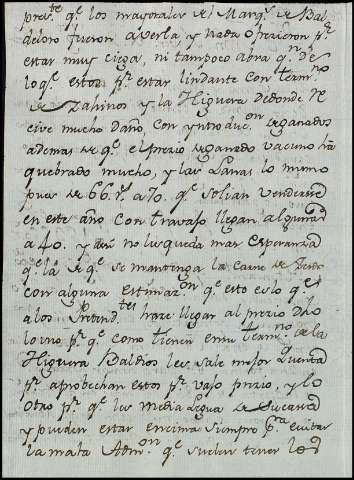 pres.te q.e los mayorales del Marq.s de Bal
deloro fueron a verla, y nada ofrecieron p.r
estar muy ciega, ni tampoco abra q.n de
lo q.e estos p.r estar lindante con term.no
de Zahinos y la Higuera de donde Re
cive mucho daño, con yntroduc.on de ganados
ademas de q.e el precio de ganado vacuno ha
quebrado mucho, y las Lanas lo mismo
pues de 66 r.s a 70. q.e solian venderse
en este año con travajo llegan algunas
a 40. y no les queda mas esperanza
q.e la de q.e se mantenga la carne de
con alguna estimaz.on q.e esto es lo q.e
a los Pretend.tes haze llegar al prezio
lo uno p.r q.e como tienen en su term.no de la
Higuera Baldios les sale mejor quenta
p.r aprobechan estos p.r vajo prezio, y lo
otro p.r q.e les media legua de
y pueden estar encima siempre p.a evitar
la mala Adm.on q.e suelen tener los